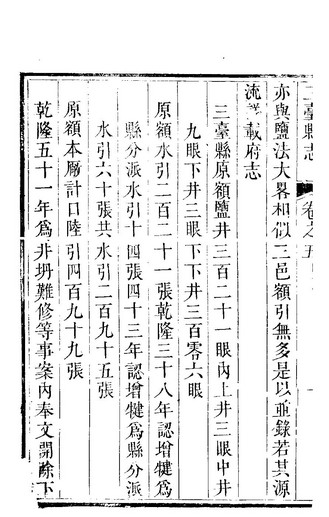 三臺縣志 卷之五
亦與鹽法大畧相似三邑額引無多是以並錄若其源
流詳載府志
三臺縣原額鹽井三百二十一眼內上井三眼中井
九眼下井三眼下下井三百零六眼
原額水引二百二十一張乾隆三十八年認增犍爲
縣分派水引十四張四十三年認增犍爲縣分派
水引六十張共水引二百九十五張
原額本厫計口陸引四百九十九張
乾隆五十一年爲井坍難修等事案內奉文開除下